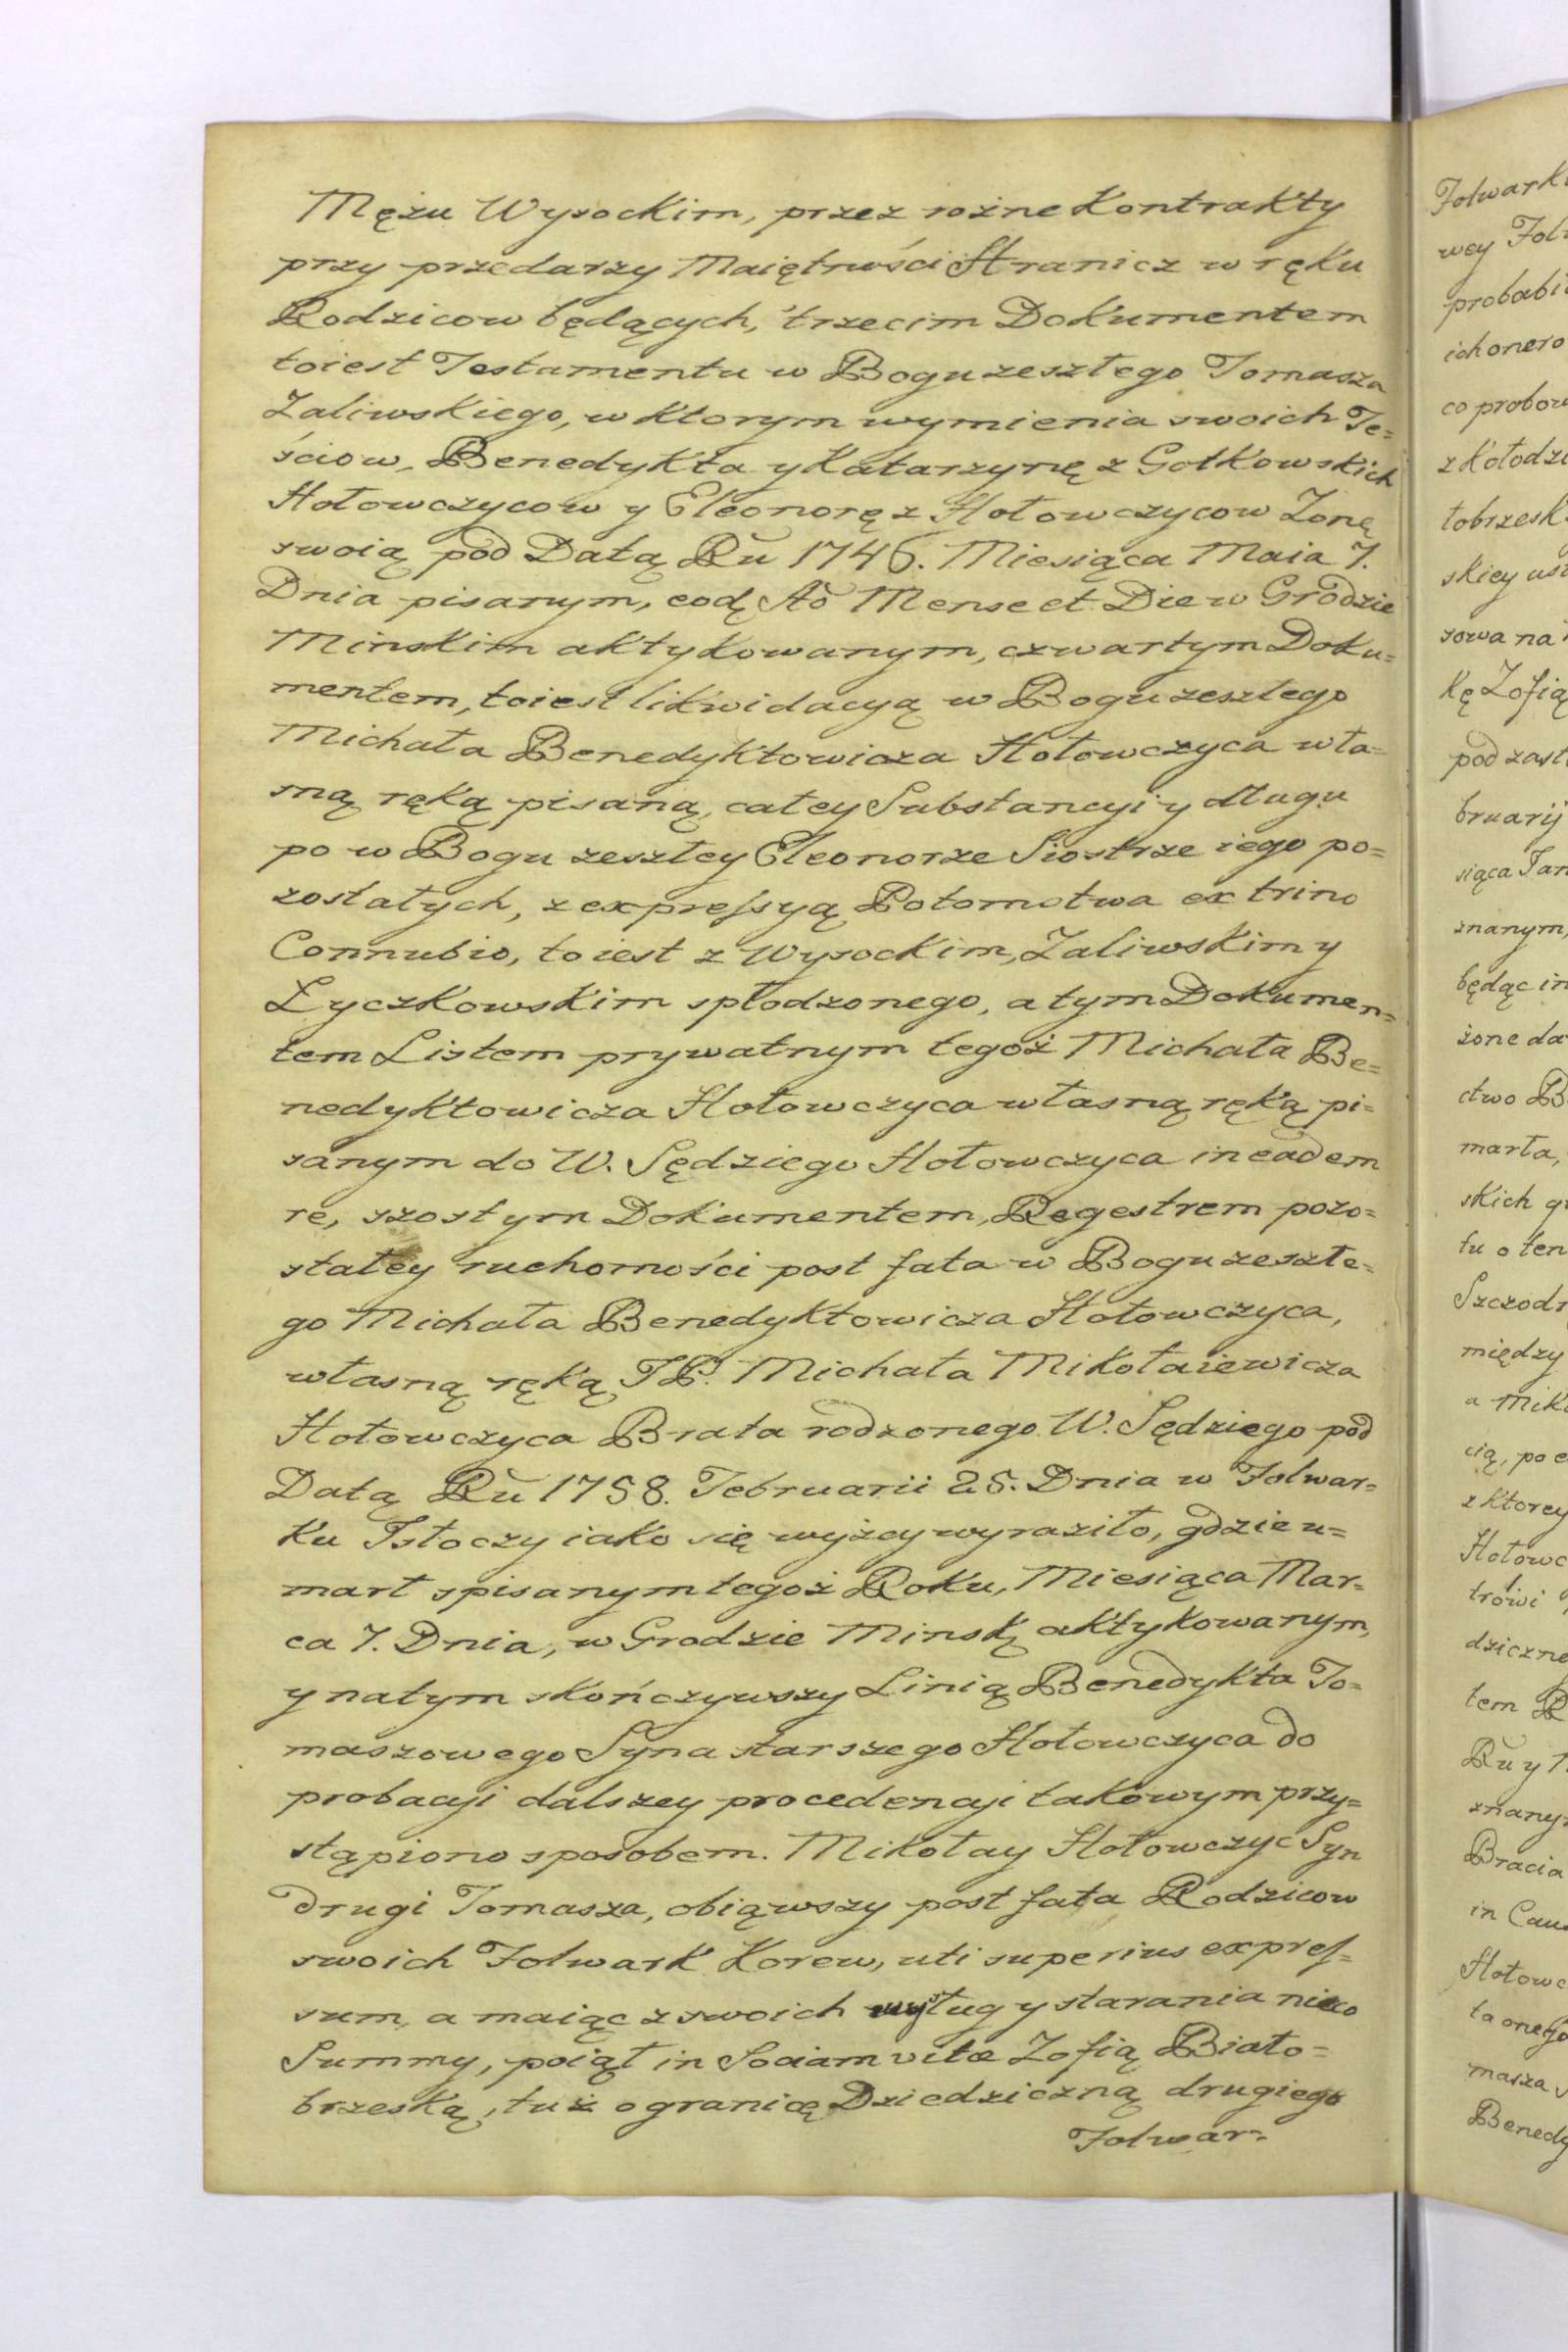 Mężu Wysockim, przez rożne Kontrakty
przy przedarzy Maiętności Hranicz w ręku
Rodzicow będących, trzecim Dokumentem
toiest Testamentu w Bogu zeszłego Tomasza
Zaliwskiego, w ktorym wymienia swoich Te=
ściow, Benedykta y Katarzynę z Gołkowskich
Hołowczycow y Eleonorę z Hołowczycow Zonę
swoią pod Datą Ru 1746. Miesiąca Maia 7.
Dnia pisanym, eodę Ao Mense et Die w Grodzie
Minskim aktykowanym, czwartym Doku=
mentem, toiest likwidacyą w Bogu zeszłego
Michała Benedyktowicza Hołowczyca wła=
sną ręką pisaną, całey Substancyi y długu
po w Bogu zeszłey Eleonorze Siostrze iego po=
zostałych, z expressyą Potomstwa ex trino
Connubio, to iest z Wysockim, Zaliwskim y
Łyczkowskim spłodzonego, a tym Dokumen=
tem Listem prywatnym tegoż Michała Be=
nedyktowicza Hołowczyca własną ręką pi=
sanym do W. Sędziego Hołowczyca in eadem
re, szostym Dokumentem, Regestrem pozo=
stałey ruchomości post fata w Bogu zeszłe=
go Michała Benedyktowicza Hołowczyca,
własną ręką JP. Michała Mikołaiewicza
Hołowczyca Brata rodzonego W. Sędziego pod
Datą Ru 1758. Februarii 25. Dnia w Folwar=
ku Istoczy iako się wyżey wyraziło, gdzie u=
marł spisanym tegoż Roku, Miesiąca Mar=
ca 7. Dnia, w Grodzie Minsk aktykowanym,
y na tym skończywszy Linią Benedykta To=
maszowego Syna starszego Hołowczyca do
probacyi dalszey procedencyi takowym przy=
stąpiono sposobem. Mikołay Hołowczyc Syn
drugi Tomasza, obiąwszy post fata Rodzicow
swoich Folwark Korew, uti superius expres=
sum, a maiąc z swoich wysług y starania nieco
Summy, poiął in Sociam vitæ Zofią Biało=
brzeską, tuż o granicę Dziedziczną drugiego
Folwar=

Folwark
wey Fol
probabi
ich onero
co probow
z Kołodzi
łobrzesk
skiey
sowa na
kę Zofią
pod zast
bruarij
siąca Jan
znanym,
będąc in
żone da
ctwo B
marła,
skich
tu o ten
Szczodr
między
a Mik
cią, po
z ktorey
Hołowc
trowi
dziczne
tem R
Ru y 1
znany
Bracia
in Cau
Hołowc
ta onego
masza
Benedy